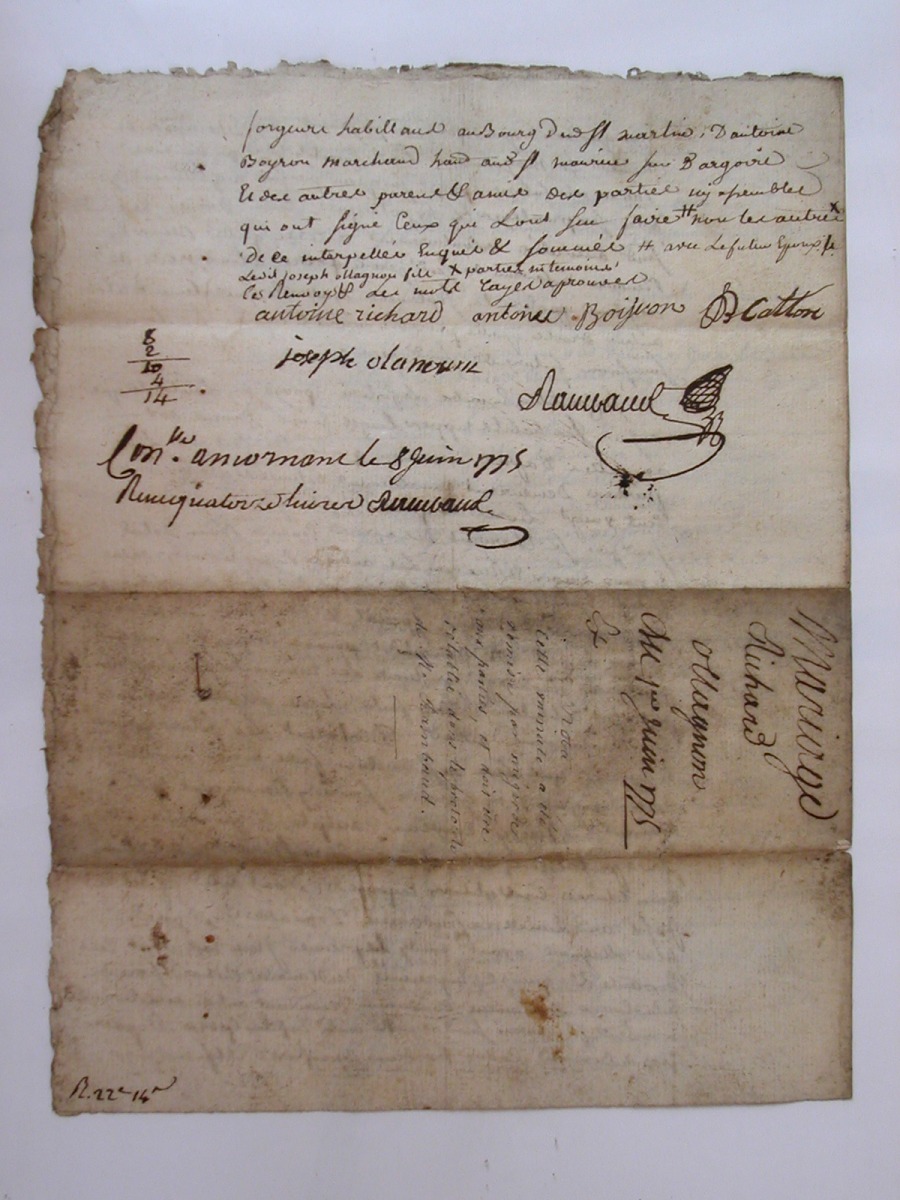 forgeure habittant au Bourg dud st martin, D'antoine
Boyron marchand hand aud st maurice sur Dargoire
Et des autres parents & amis des parties icy assemblés
qui ont signé Ceux que L'ont sçu faire # non les autres x
de ce interpellés Enquis & sommés # avec Le futur Epoux &
Led. joseph ollagnon fils x parties ni temoins
Ces Renvoys & des mots Rayés aprouvés
antoine richard antoine Boiron Catton
joseph olanniee
8
2
10
4
14
Rambaud
Con.lle a mornant le 8 juin 1775
Reçu quatorze livres Rambaud
Mariage
Richard
ollagnon
Du 1er juin 1775
Et
Cette minute a été
omise par mégarde
aux parties, et doit être
rétablie dans le protocole
de Me Rambaud.
R. 22e 14e